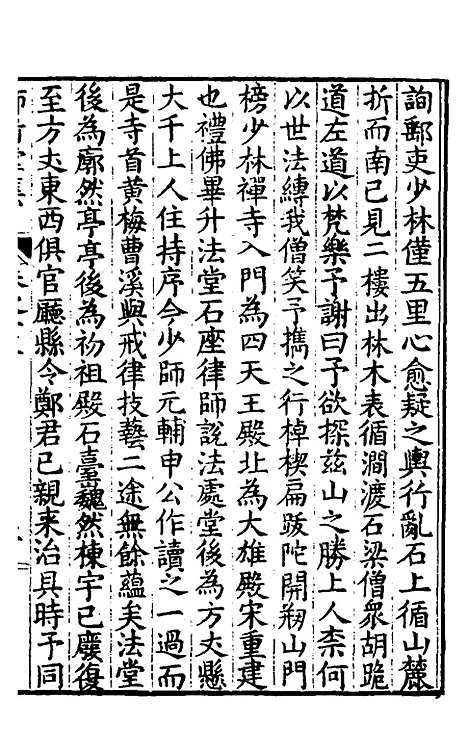 詢郵吏少林僅五里心愈疑之輿行亂石上循山麓
折而南已見二樓出林木表循澗渡石梁僧衆胡跪
道左道以梵樂予謝曰予欲探茲山之勝上人柰何
以世法縳我僧笑予攜之行棹楔扁跋陀開剏山門
榜少林禪寺入門為四天王殿北為大雄殿宋重建
也禮佛畢升法堂石座律師說法處堂後為方丈懸
大千上人住持序今少師元輔申公作讀之一過而
是寺首黃梅曹溪與戒律技藝二途無餘蘊矣法堂
後為廓然亭亭後為初祖殿石臺巍然棟宇已廢復
至方丈東西俱官廳縣令鄭君已親来治具時予同